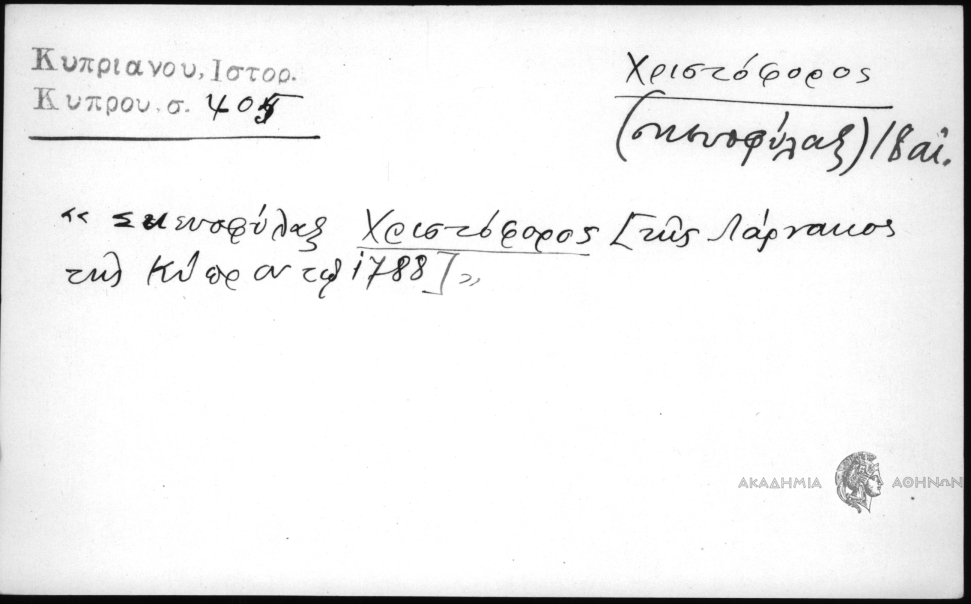 Κυπριανου, Ιστορ.
Κυπρου. σ. 405
Χριστόφορος
(σκευοφύλαξ) 18 αἰ.
«Σκευοφύλαξ Χριστόφορος [τῆς Λάρνακος
τῆς Κύπρου τῷ 1788]»
ΑΚΑΔΗΜΙΑ ΑΘΗΝΩΝ